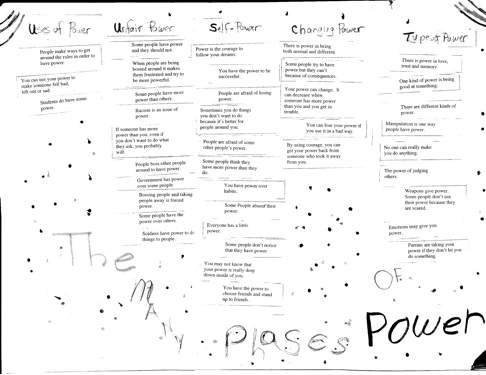 Uses of Power
People make ways to get
around the rules in order to
have power.
You can use your power to
make someone fell bad,
left out or sad.
Students do have some
power.
Unfair Power
Some people have power
and they should not.
When people are being
bossed around it makes
them frustrated and try to
be more powerful.
Some people have more
power than others.
Racism is an issue of
power.
If someone has more
power than you, even if
you don't want to do what
they ask, you probably
will.
People boss other people
around to have power.
Government has power
over some people.
Bossing people and taking
people away is forced
power.
Some people have the
power over others.
Soldiers have power to do
things to people.
Self-Power
Power is the courage to
follow your dreams.
You have the power to be
successful.
People are afraid of losing
power.
Sometimes you do things
you don't want to do
because it's better for
people around you.
People are afraid of some
other people's power.
Some people think they
have more power than they
do.
You have power over
habits.
Some People abused their
power.
Everyone has a little
power.
Some people don't notice
that they have power.
You may not know that
your power is really deep
down inside of you.
You have the power to
choose friends and stand
up to friends.
Changing Power
There is power in being
both normal and different.
Some people try to have
power but they can't
because of consequences.
Your power can change. It
can decrease when
someone has more power
than you and you get in
trouble.
You can lose your power if
you use it in a bad way.
By using courage, you can
get your power back from
someone who took it away
from you.
Types of Power
There is power in love,
trust and memory.
One kind of power is being
good at something.
There are different kinds of
power.
Manipulation is one way
people have power.
No one can really make
you do anything.
The power of judging
others.
Weapons give power.
Some people don't use
their power because they
are scared.
Emotions may give you
power.
Parents are taking your
power if they don't let you
do something.
The
MANY
Phases
OF
Power